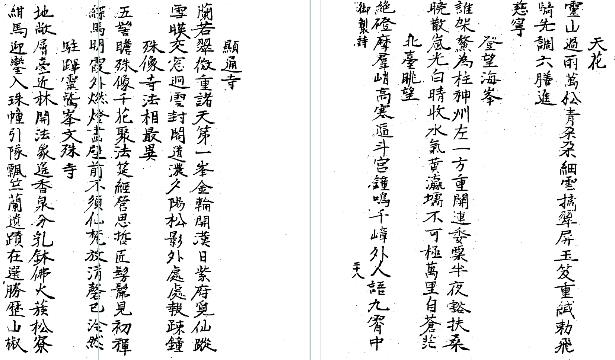 天花
靈山過雨萬松青朵朵細雲摛翠屏玉笈重緘勅飛
騎先調六膳進
慈寧
登望海峯
誰架鰲為柱神州左一方重關進委粟半夜豁扶桑
曉散嵐光白晴收水氣黃瀛壖不可極萬里自蒼茫
北臺眺望
絕磴摩羣峭高寒逼斗宮鐘鳴千嶂外人語九霄中
御製詩
顯通寺
蘭若翠微重諸天第一峯金輪開漢日紫府覓仙蹤
雪暎交窓迥雲封閣道濃夕陽松影外處處報疎鐘
殊像寺法相最異
五臺瞻殊像千花聚法筵經營思哲匠髣髴見初禪
繫馬明霞外燃燈畫壁前不須仙梵放清磬已泠然
駐蹕靈鷲峯文殊寺
地敞屏臺近林開法象遙香泉分乳鉢佛火簇松寮
紺馬迎鑾入珠幢引隊飄竺蘭遺蹟在選勝山椒